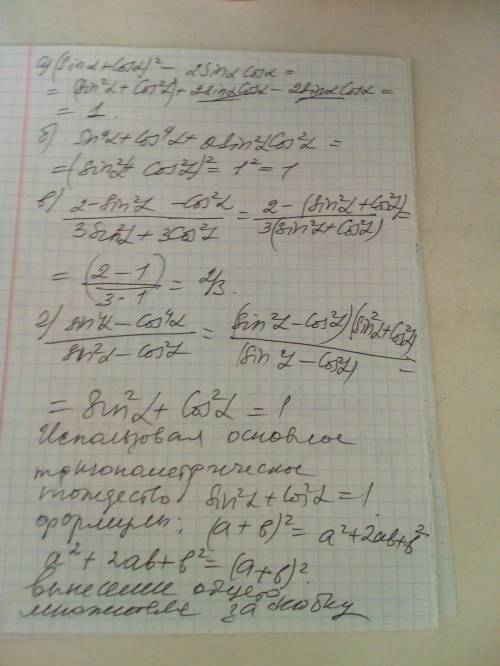 а) (sinα + cosα)² − 2sinα cosα =
= (sin²α + cos²α) + 2sinα cosα − 2sinα cosα =
= 1.
б) sin⁴α + cos⁴α + 2sin²α cos²α =
= (sin²α + cos²α)² = 1² = 1
в) (2 − sin²α − cos²α)/(3sin²α + 3cos²α) = (2 − (sin²α + cos²α))/(3(sin²α + cos²α)) =
= (2 − 1)/(3·1) =
г) (sin⁴α − cos⁴α)/(sin²α − cos²α) = (sin²α − cos²α)(sin²α + cos²α)/(sin²α − cos²α) =
= sin²α + cos²α = 1
Использовал основное
тригонометрическое
тождество sin²α + cos²α = 1.
формулы: (a + b)² = a² + 2ab + b²
a² + 2ab + b² = (a + b)².
вынесение общего
множителя за скобку